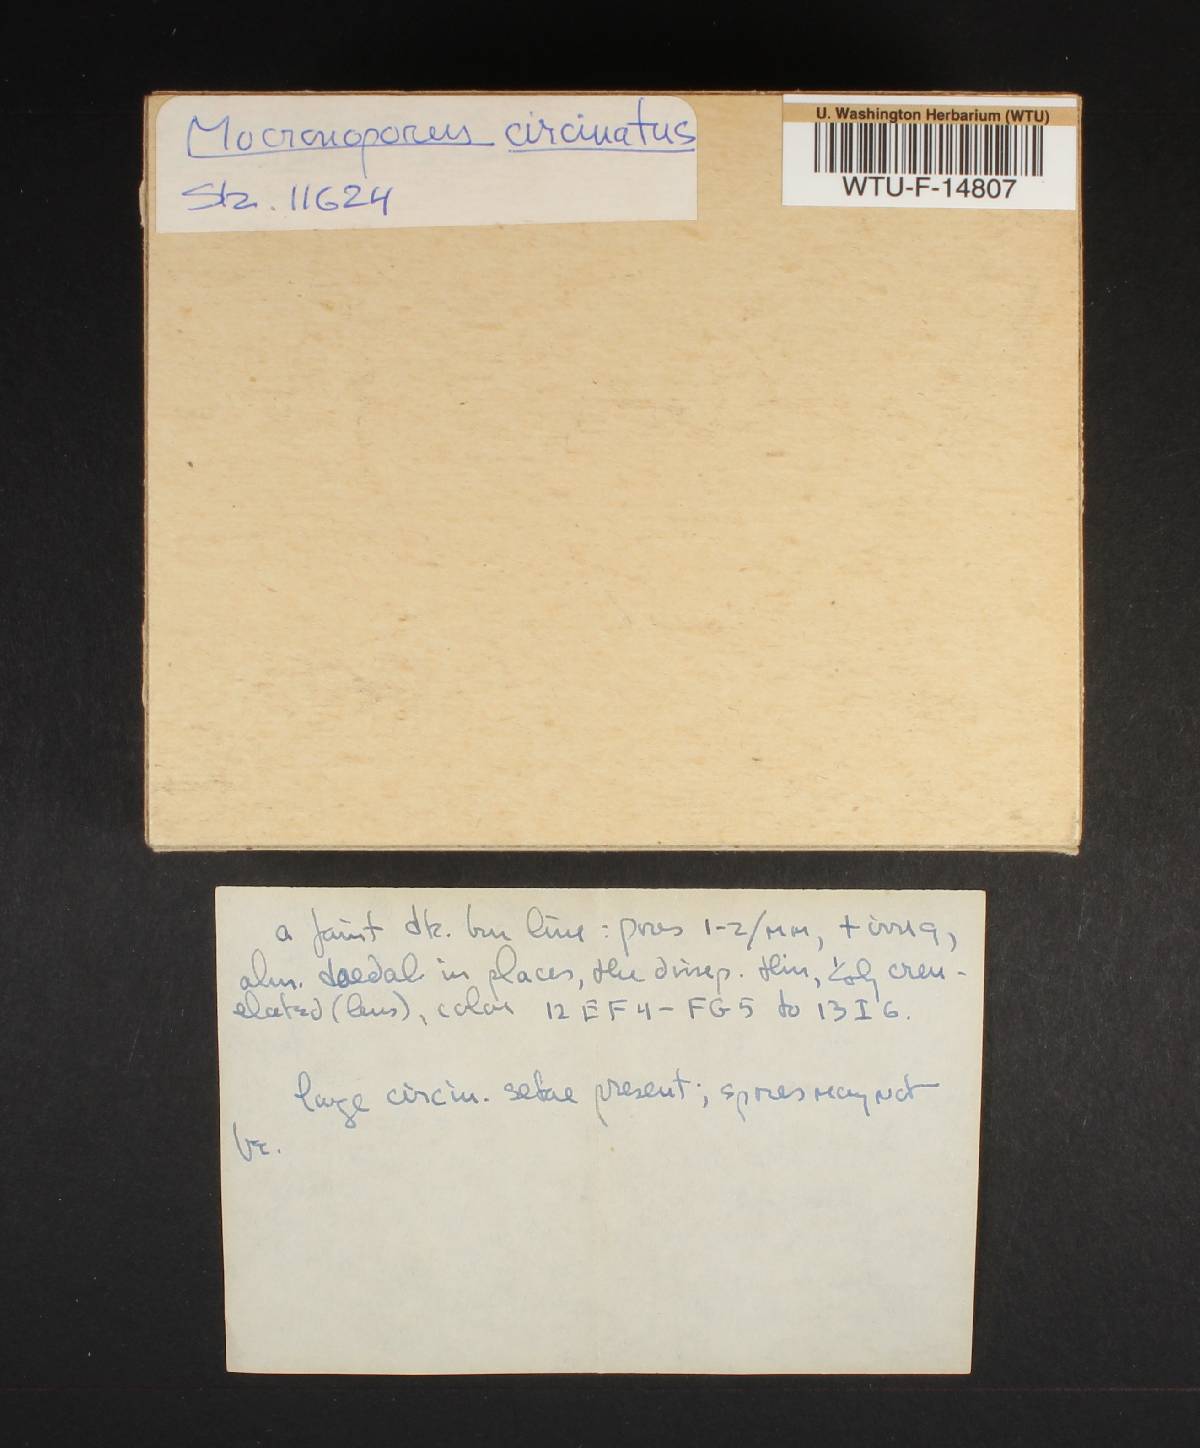 Mucronoporus circinatus
Stz. 11624
U. Washington Herbarium (WTU)
WTU-F-14807
a faint dk. brn line : pores 1-2/mm, ± irreg,
alm. daedal. in places, the dissep. thin, cren-
elated (lens), color 12 EF4 - FG5 to 13 I 6.
large circin. setae present ; spores may not
be.